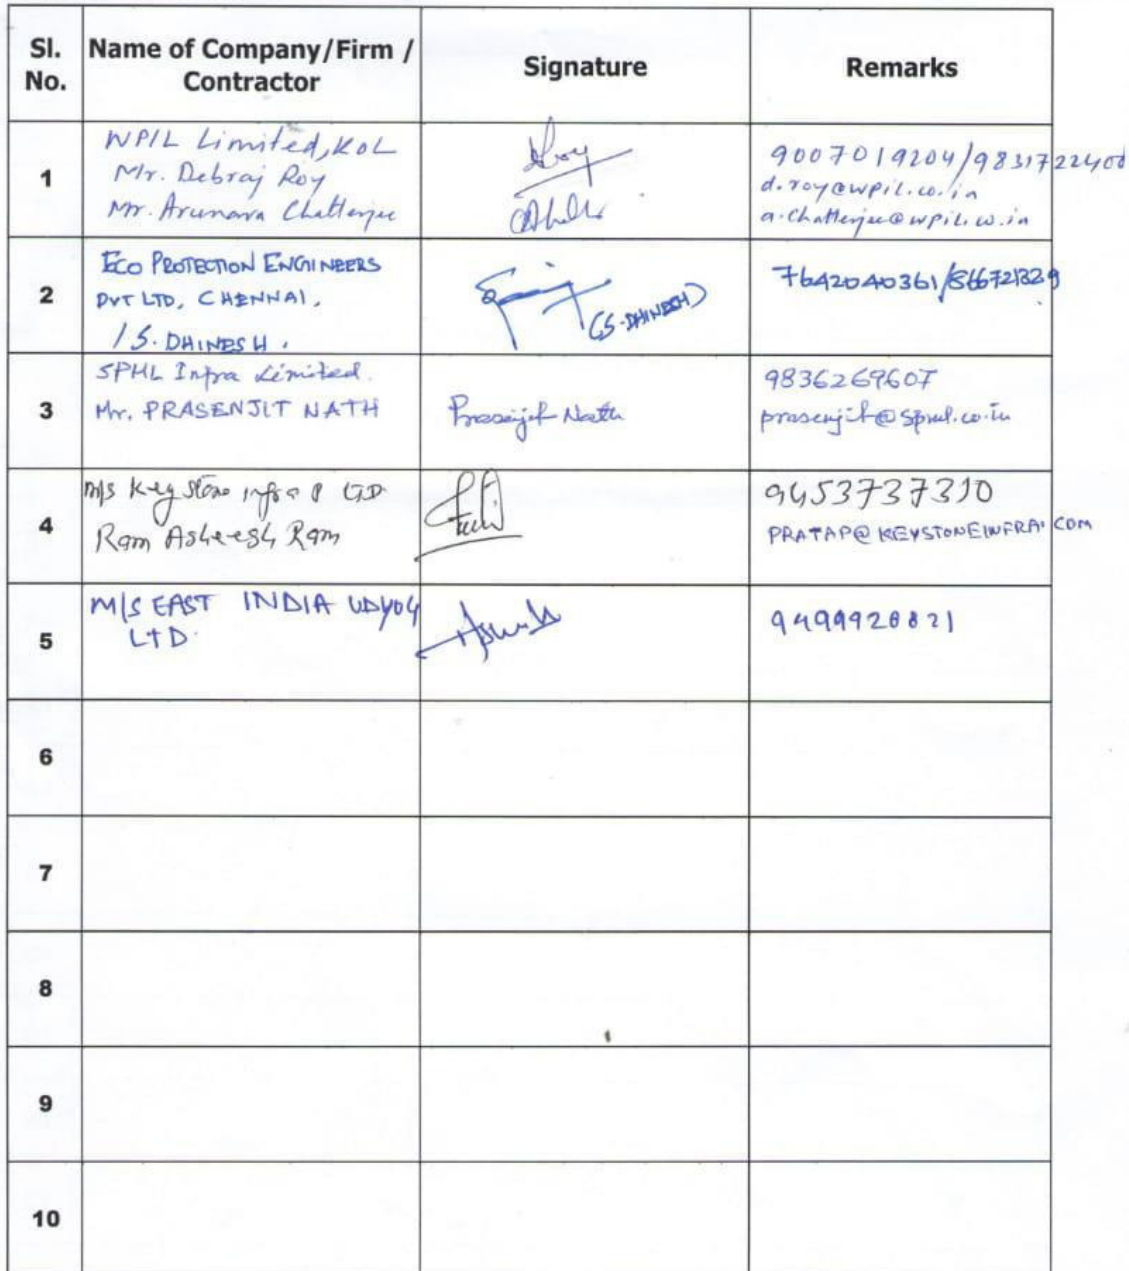 Sl. No.
Name of Company/Firm / Contractor
Signature
Remarks
1
WPIL Limited, KOL
Mr. Debraj Roy
Mr. Arunava Chatterjee
9007019204/9831722400
d.roy@wpil.co.in
a.chatterjee@wpil.co.in
2
ECO PROTECTION ENGINEERS
PVT LTD, CHENNAI.
/S. DHINESH.
(S-DHINESH)
7642040361/
3
SPML Infra Limited.
Mr. PRASENJIT NATH
Prasenjit Nath
9836269607
prasenjit@spml.co.in
4
M/s Keystone infra P LTD
Ram Asheesh Ram
9453737310
PRATAP@KEYSTONEINFRA.COM
5
M/S EAST INDIA UDYOG
LTD.
9499928821
6
7
8
9
10